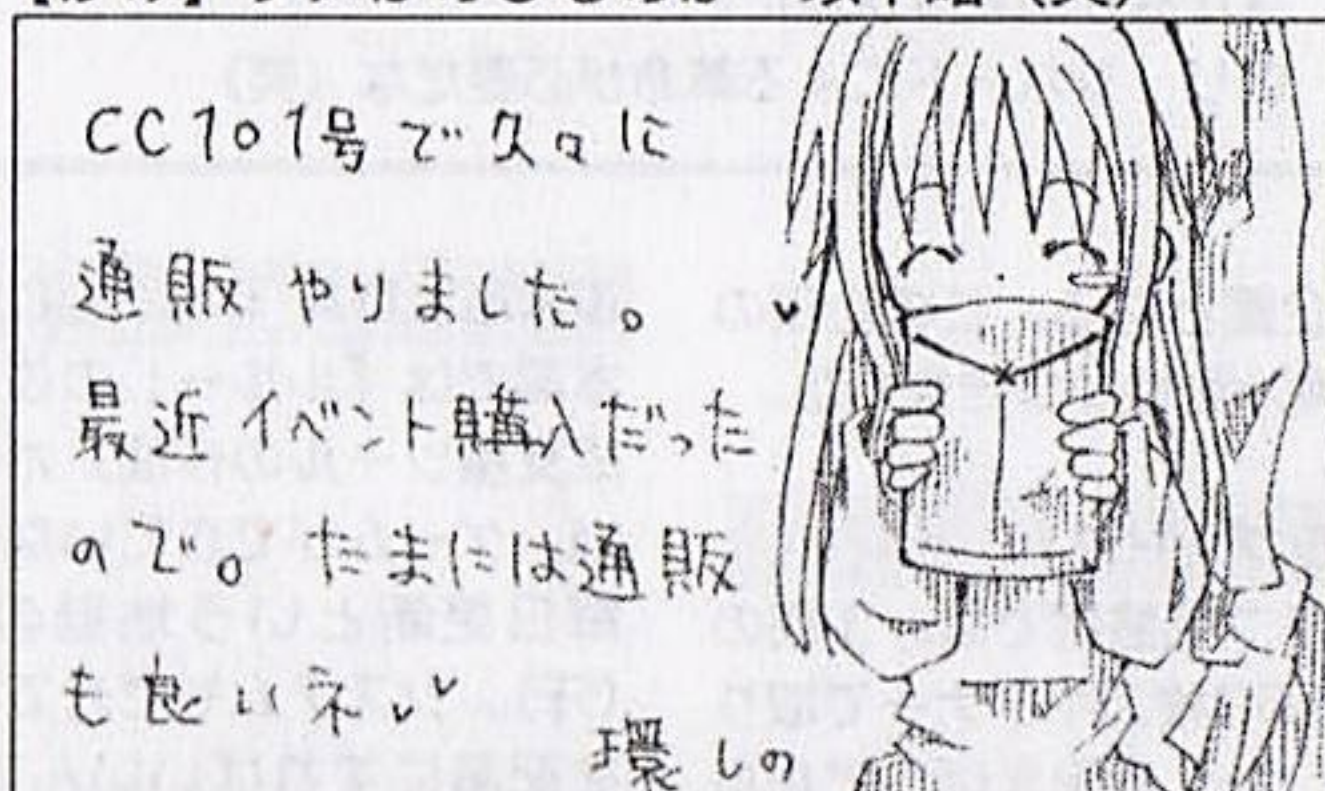 CC101号で久々に
通販やりました。
最近イベント購入だった
ので。たまには通販
も良いネ♥
環しの